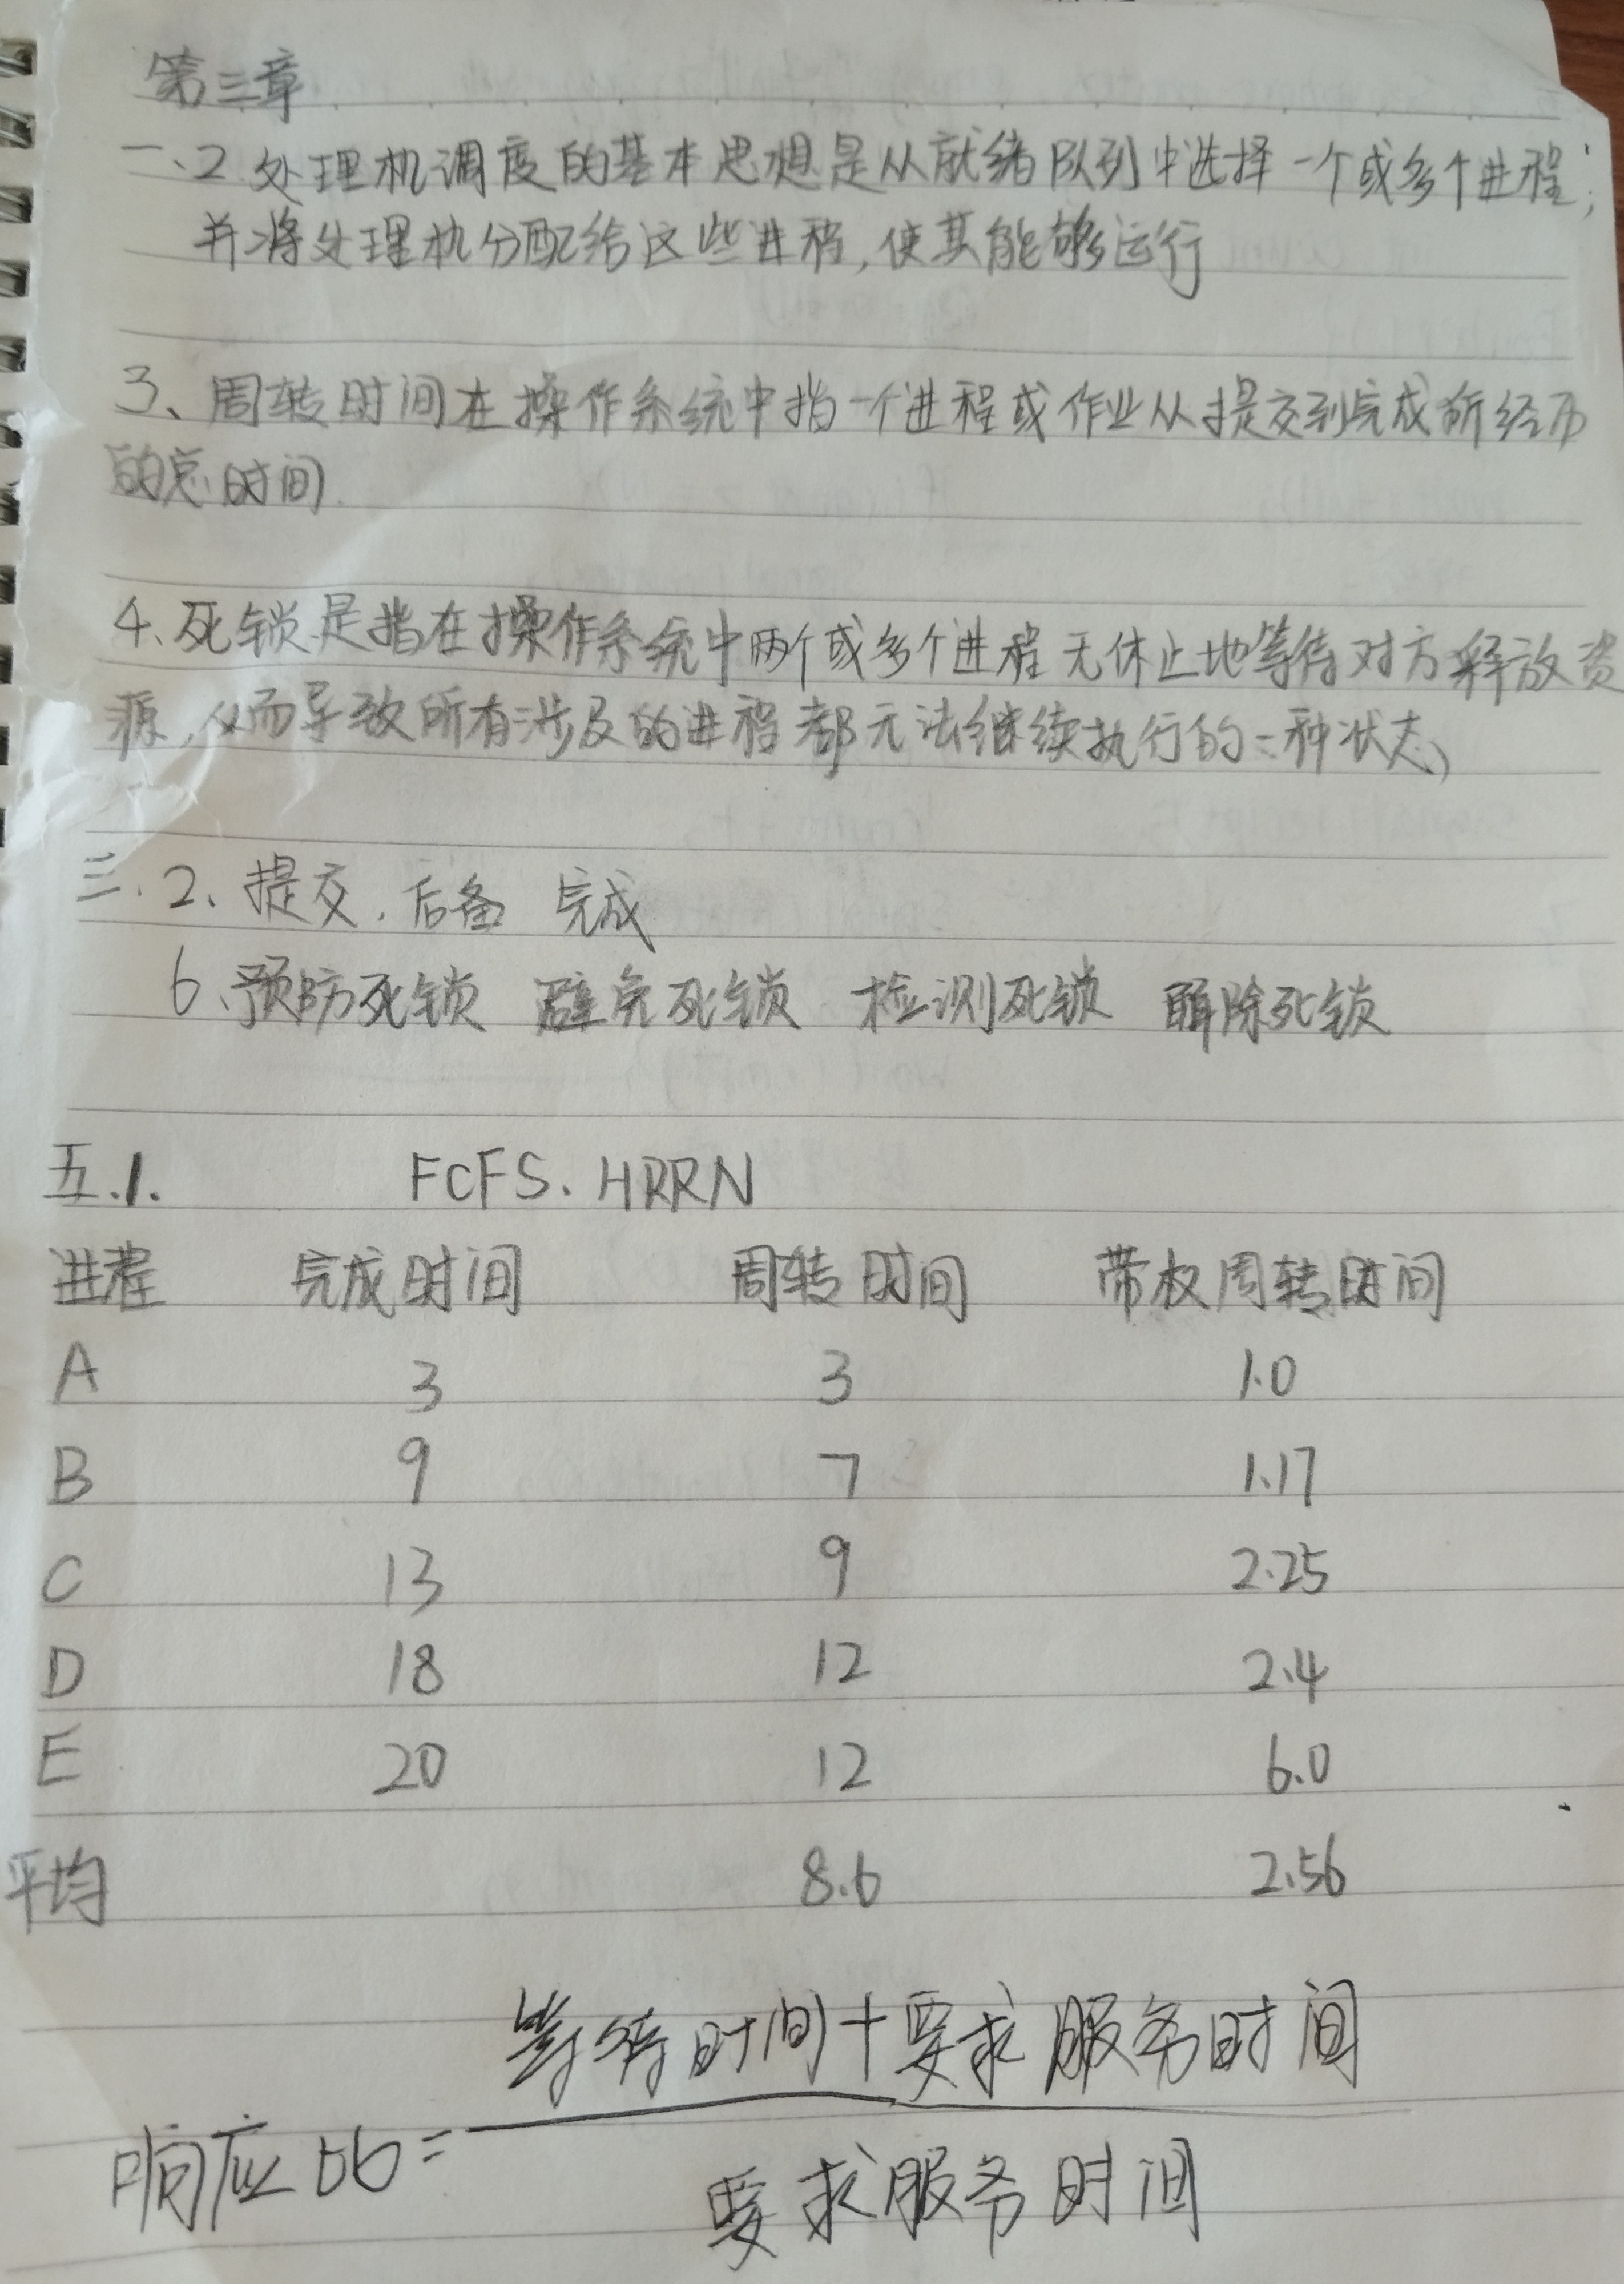 第三章
一、2.处理机调度的基本思想是从就绪队列中选择一个或多个进程;
并将处理机分配给这些进程,使其能够运行
3、周转时间在操作系统中指一个进程或作业从提交到完成所经历
的总时间
4、死锁是指在操作系统中两个或多个进程无休止地等待对方释放资
源,从而导致所有涉及的进程都无法继续执行的一种状态、
三.2、提交.后备 完成
6、预防死锁 避免死锁 检测死锁 解除死锁
五.1. FCFS、HRRN
进程 完成时间 周转时间 带权周转时间
A 3 3 1.0
B 9 7 1.17
C 13 9 2.25
D 18 12 2.4
E 20 12 6.0
平均 8.6 2.56
等待时间+要求服务时间
响应比=
要求服务时间